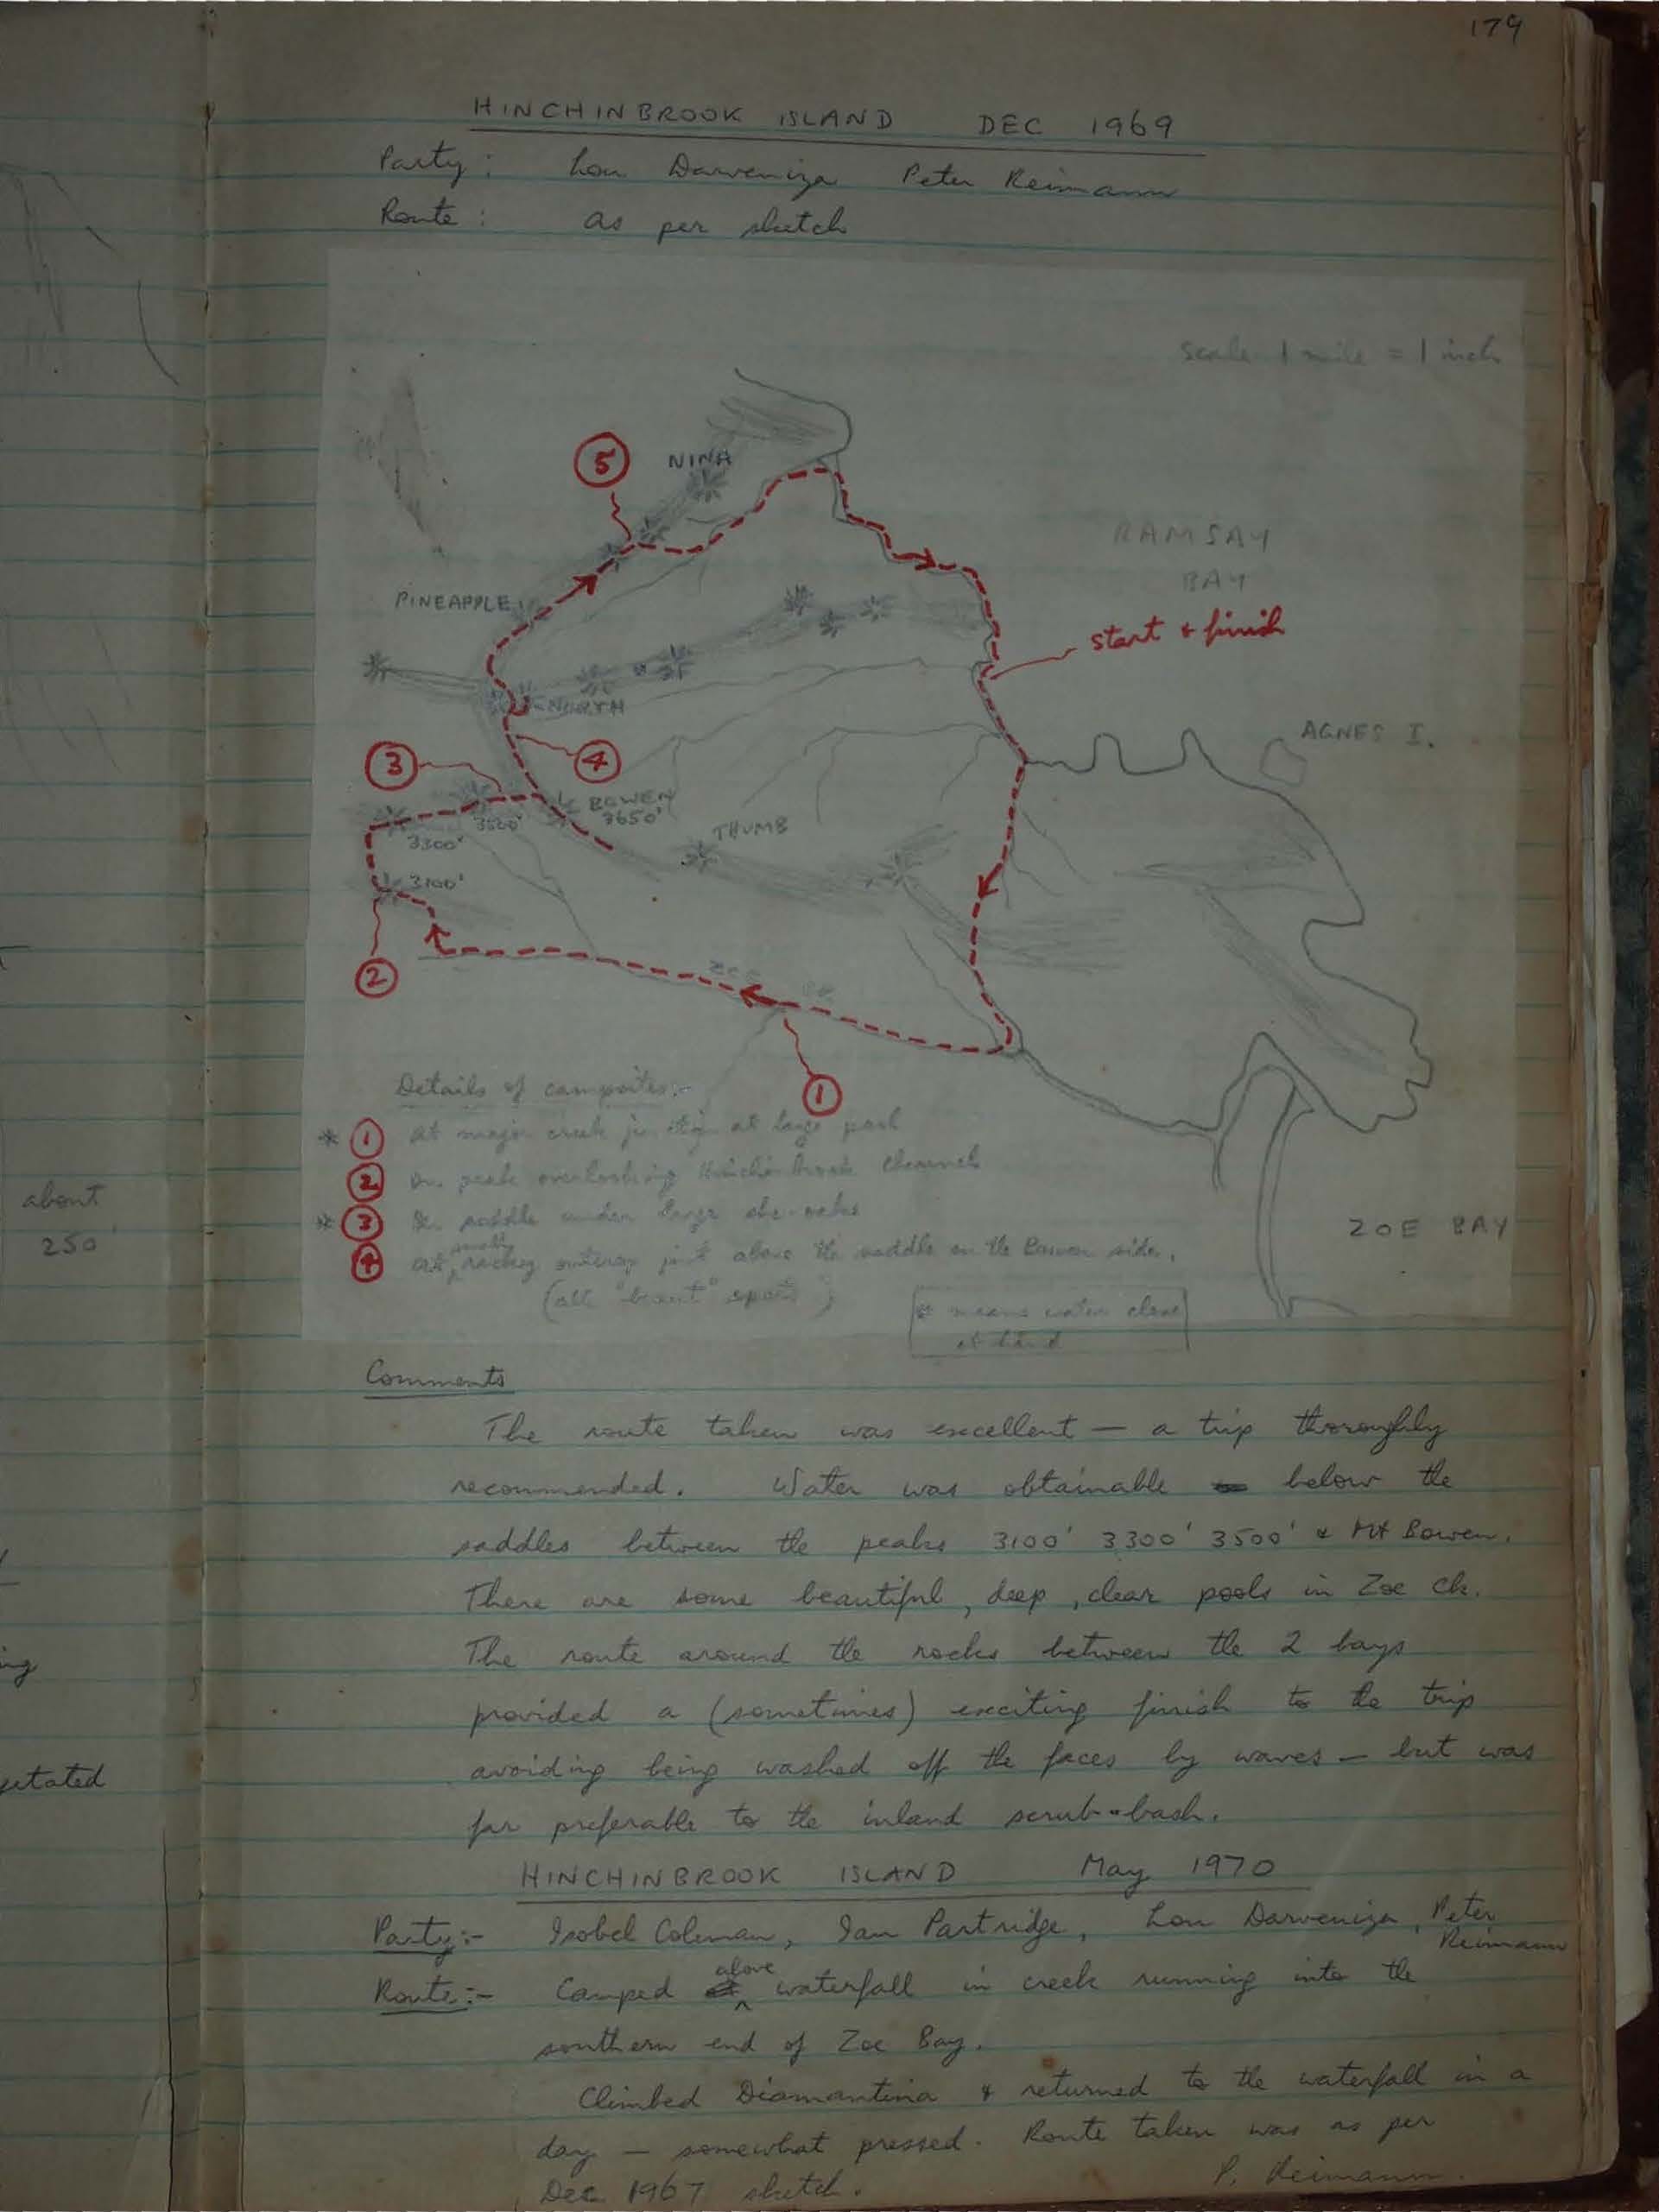 179
HINCHINBROOK ISLAND DEC 1969
Party: Lou Darveniza Peter Reimann
Route: as per sketch
scale 1 mile = 1 inch
5
NINA
RAMSAY
BAY
PINEAPPLE
start & finish
NORTH
AGNES I.
3
4
BOWEN
3650'
3500'
THUMB
3300'
3100'
2
ZOE
CK
1
Details of campsites:-
* 1 At major creek junction at large pool
2 On peak overlooking Hinchinbrook Channel
* 3 On saddle under large she-oaks
4 at smallish rocky outcrop just above the saddle on the Bowen side.
(all "beaut" spots)
* means water close
at hand
ZOE BAY
about
250'
Comments
The route taken was excellent — a trip thoroughly
recommended. Water was obtainable below the
saddles between the peaks 3100' 3300' 3500' & Mt Bowen.
There are some beautiful, deep, clear pools in Zoe Ck.
The route around the rocks between the 2 bays
provided a (sometimes) exciting finish to the trip
avoiding being washed off the faces by waves — but was
far preferable to the inland scrub-bash.
HINCHINBROOK ISLAND May 1970
Party:- Isobel Coleman, Ian Partridge, Lou Darveniza, Peter
Reimann
Route:- Camped above waterfall in creek running into the
southern end of Zoe Bay.
Climbed Diamantina & returned to the waterfall in a
day — somewhat pressed. Route taken was as per
Dec 1967 sketch.
P. Reimann.